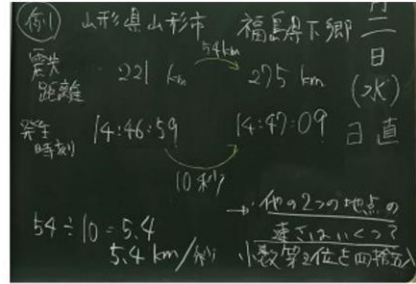 例1 山形県山形市 福島県下郷
54km
震央距離 221 km 275 km
発生時刻 14:46:59 14:47:09
10秒
54÷10=5.4
5.4 km/秒
→ 他の2つの地点の
速さはいくつ?
小数第2位を四捨五入
月二日(水)
日直